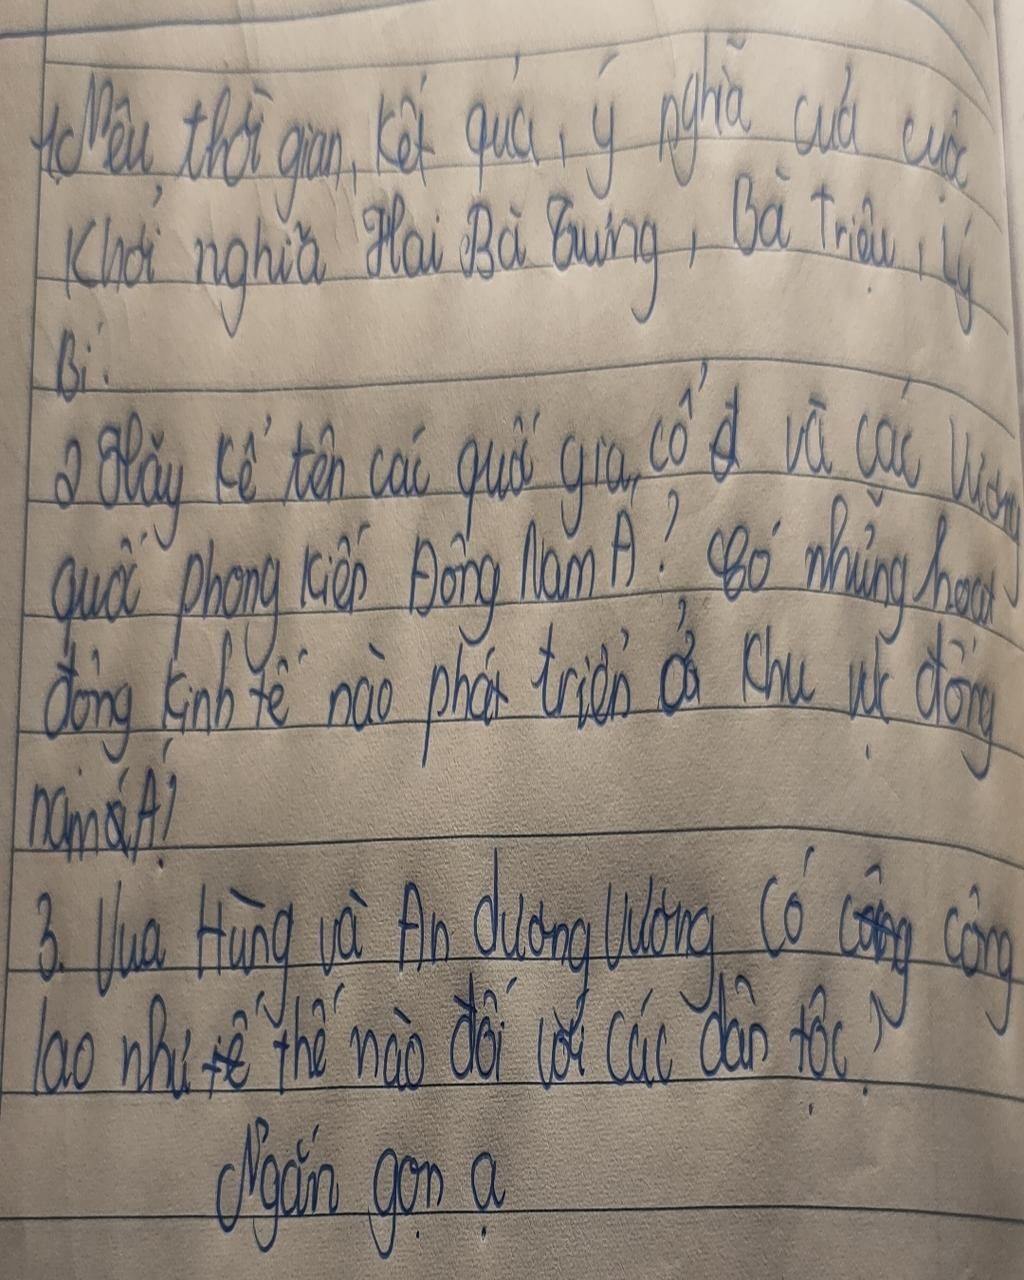 1. Nêu thời gian, kết quả, ý nghĩa của cuộc
Khởi nghĩa Hai Bà Trưng, Bà Triệu, Lý
Bí.
2 Hãy kể tên các quốc gia cổ và các Vương
quốc phong kiến Đông Nam Á? Có những hoạt
động kinh tế nào phát triển ở khu vực đông
nam Á?
3. Vua Hùng và An dương Vương có công công
lao như tế thế nào đối với các dân tộc?
Ngắn gọn ạ